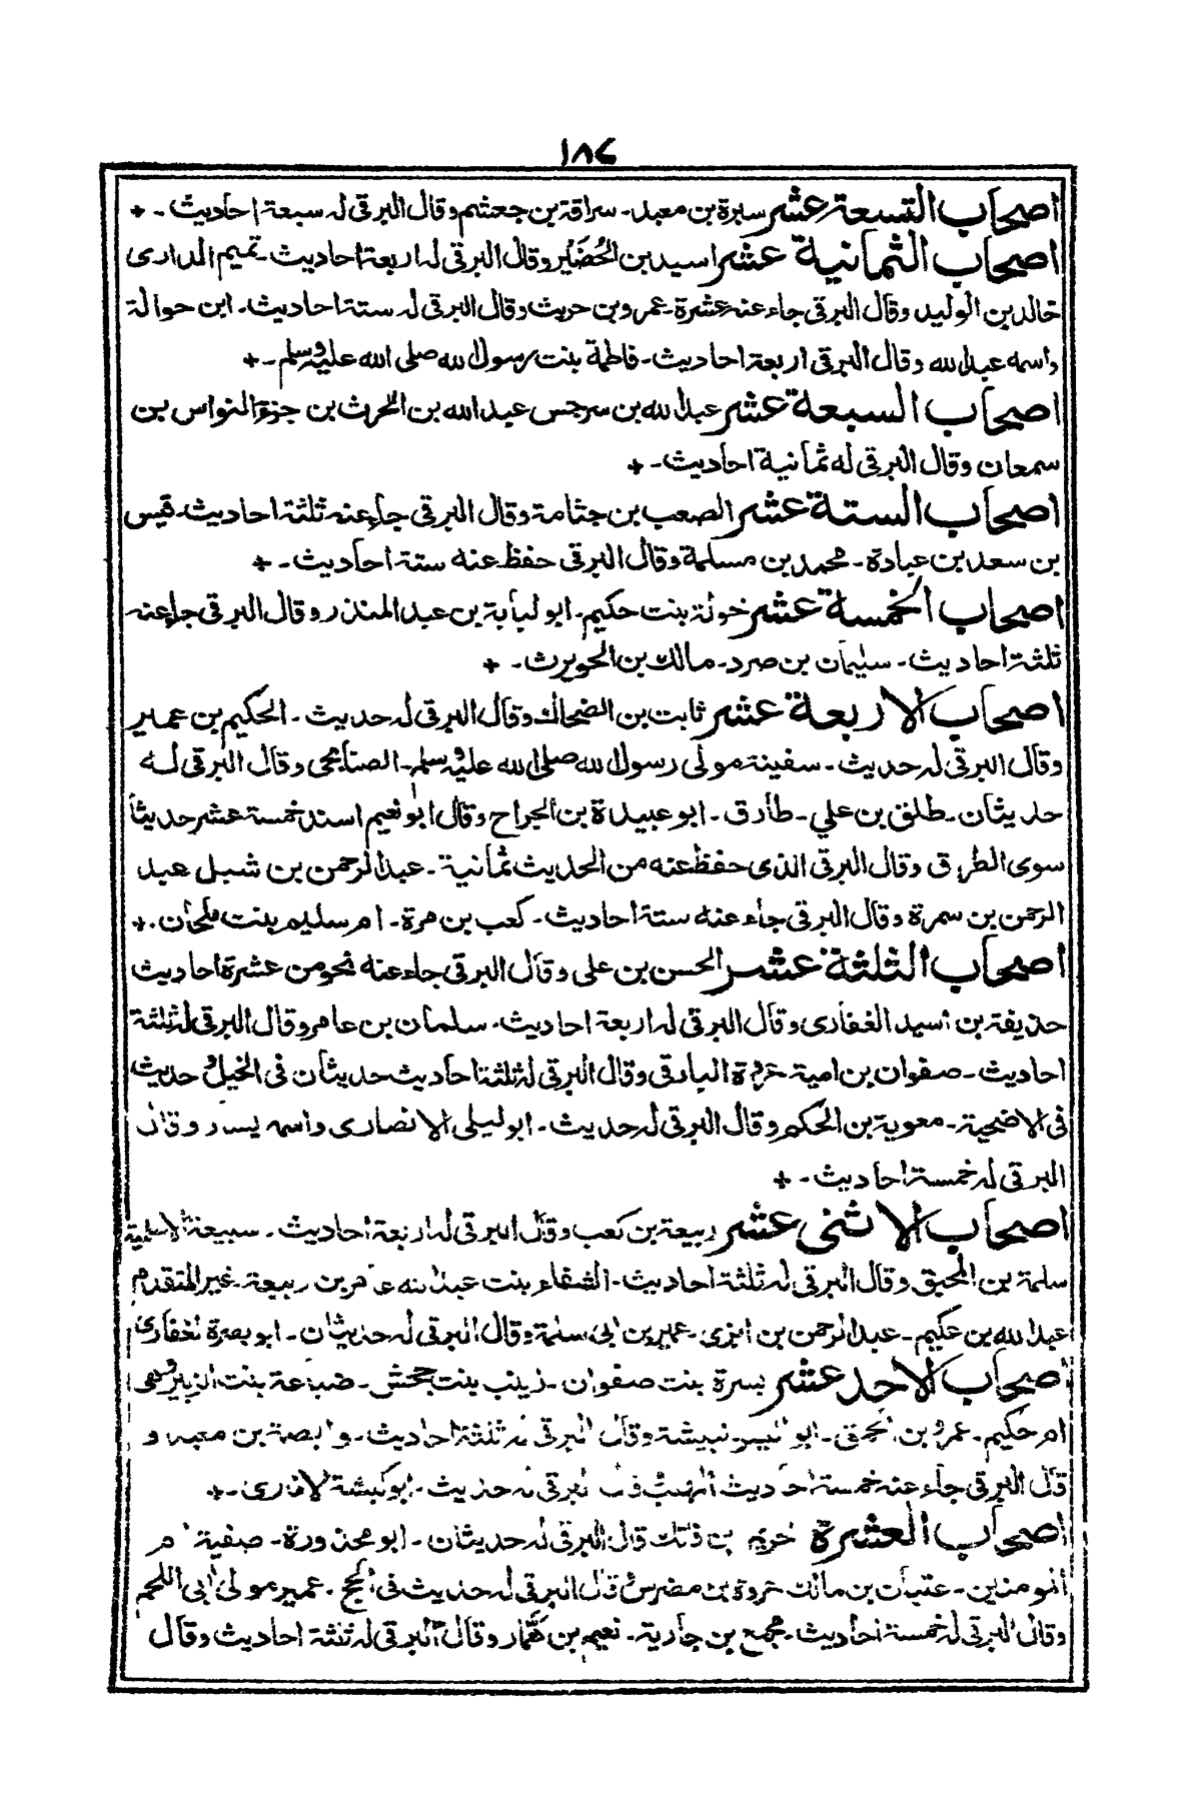 ١٨٤
اصحاب التسعة عشر سبرة بن معبد - سراقة بن جعشم وقال البرقى له سبعة احاديث - +
اصحاب الثمانية عشر اسيد بن الحُضَير وقال البرقى له اربعة احاديث - تميم الدارى
خالد بن الوليد وقال البرقى جاء عنه عشرة - عمرو بن حريث وقال البرقى له ستة احاديث - ابن حوالة
واسمه عبد الله وقال البرقى اربعة احاديث - فاطمة بنت رسول الله صلى الله عليه وسلم - +
اصحاب السبعة عشر عبد الله بن سرجس عبد الله بن الحرث بن جزء النواس بن
سمعان وقال البرقى له ثمانية احاديث - +
اصحاب الستة عشر الصعب بن جثامة وقال البرقى جاء عنه ثلثة احاديث - قيس
بن سعد بن عبادة - محمد بن مسلمة وقال البرقى حفظ عنه ستة احاديث - +
اصحاب الخمسة عشر خولة بنت حكيم - ابو لبابة بن عبد المنذر وقال البرقى جاء عنه
ثلثة احاديث - سليمان بن صرد - مالك بن الحويرث - +
اصحاب الاربعة عشر ثابت بن الضحاك وقال البرقى له حديث - الحكيم بن عمير
وقال البرقى له حديث - سفينة مولى رسول الله صلى الله عليه وسلم - الصنابحى وقال البرقى له
حديثان - طلق بن علي - طارق - ابو عبيدة بن الجراح وقال ابو نعيم اسند خمسة عشر حديثا
سوى الطرق وقال البرقى الذى حفظ عنه من الحديث ثمانية - عبد الرحمن بن شبل عبد
الرحمن بن سمرة وقال البرقى جاء عنه ستة احاديث - كعب بن مرة - ام سليم بنت ملحان - +
اصحاب الثلثة عشر الحسن بن على وقال البرقى جاء عنه نحو من عشرة احاديث
حذيفة بن اسيد الغفارى وقال البرقى له اربعة احاديث - سلمان بن عامر وقال البرقى له ثلثة
احاديث - صفوان بن امية عروة البارقى وقال البرقى له ثلثة احاديث حديثان فى الخيل و حديث
فى الاضحية - معوية بن الحكم وقال البرقى له حديث - ابو ليلى الانصارى واسمه يسار وقال
البرقى له خمسة احاديث - +
اصحاب الاثنى عشر ربيعة بن كعب وقال البرقى له اربعة احاديث - سبيعة الاسلمية
سلمة بن المحبق وقال البرقى له ثلثة احاديث - الشفاء بنت عبد الله عامر بن ربيعة - غير المتقدم
عبد الله بن عكيم - عبد الرحمن بن ابزى - عمير بن ابى سلمة وقال البرقى له حديثان - ابو بصرة الغفارى
اصحاب الاحد عشر بسرة بنت صفوان - زينب بنت جحش - ضباعة بنت الزبير وهى
ام حكيم - عمرو بن الحمق - ابو اليسر - نبيشة وقال البرقى له ثلثة احاديث - وابصة بن معبد و
قال البرقى جاء عنه خمسة احاديث قال البرقى له حديث - ابو كبشة الانمارى - +
اصحاب العشرة خريم بن فاتك قال البرقى له حديثان - ابو محذورة - صفية ام
المومنين - عتبان بن مالك عروة بن مضرس قال البرقى له حديث فى الحج - عمير مولى آبى اللحم
وقال البرقى له خمسة احاديث - مجمع بن جارية - نعيم بن همار وقال البرقى له ثلثة احاديث وقال